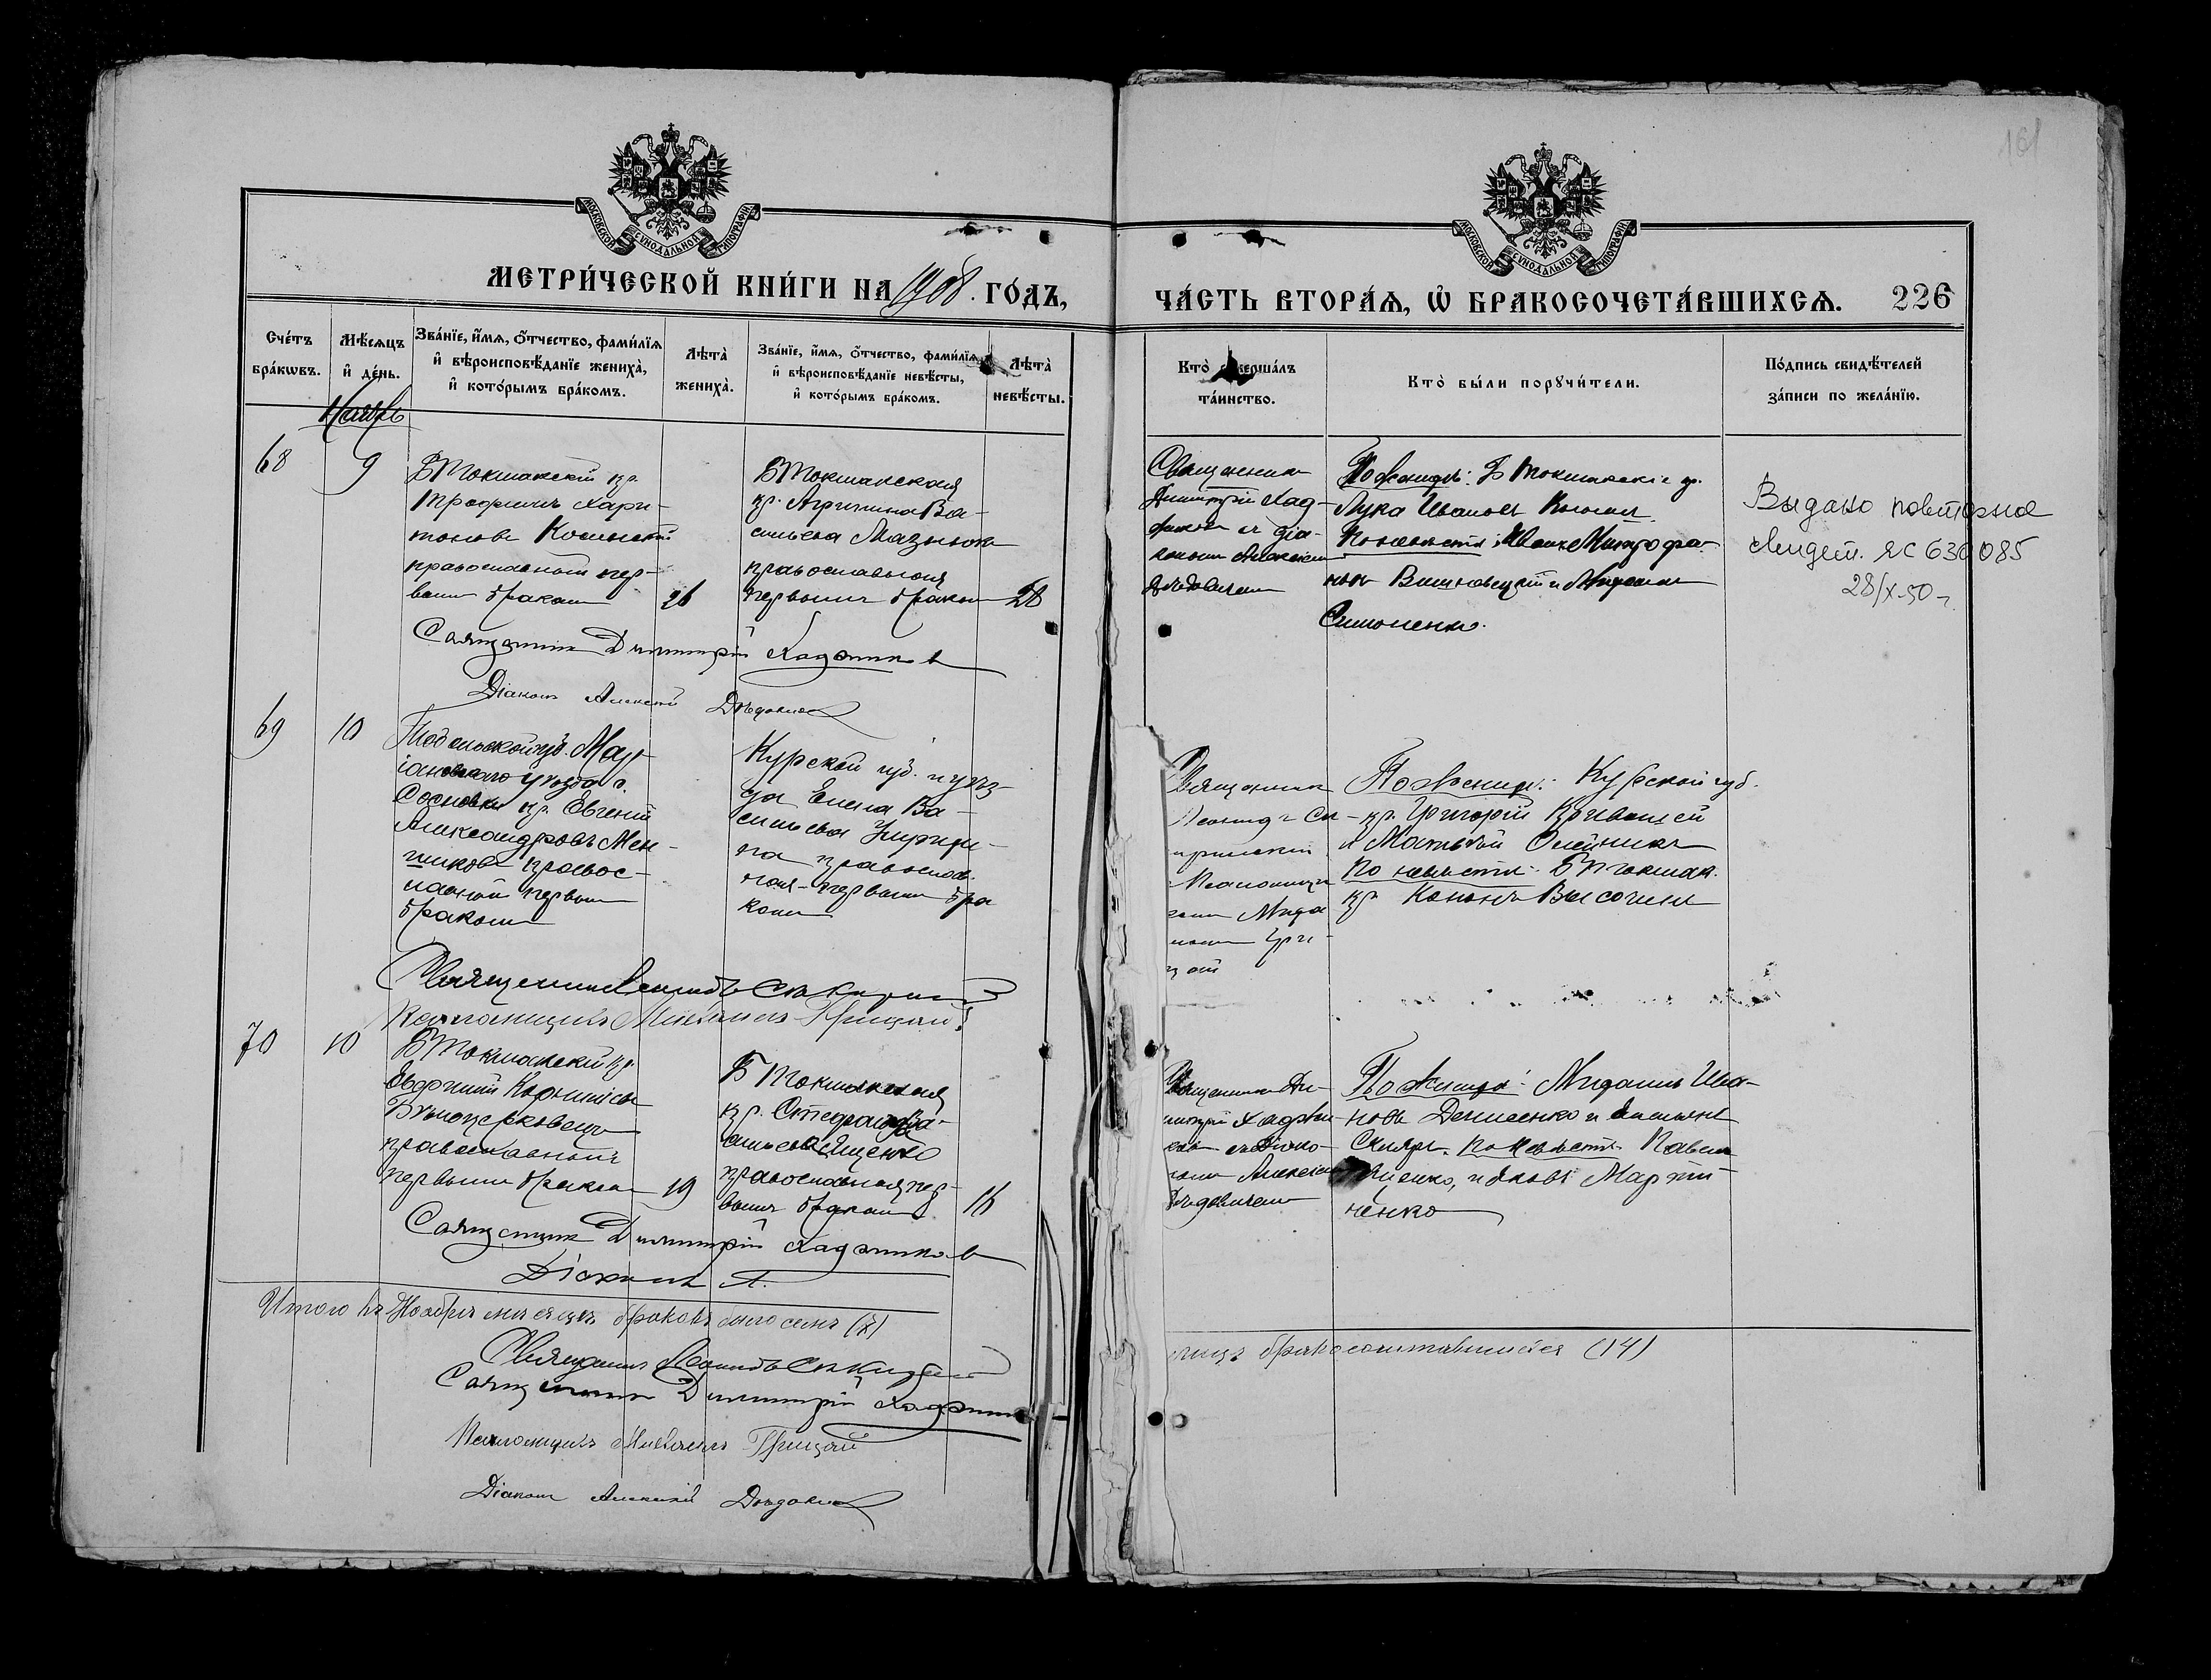 161
МОСКОВСКОЙ СѴНОДАЛЬНОЙ ТИПОГРАФІИ.
МОСКОВСКОЙ СѴНОДАЛЬНОЙ ТИПОГРАФІИ.
МЕТРИ́ЧЕСКОЙ КНИ́ГИ НА 1908. ГО́ДЪ,
ЧА́СТЬ ВТОРА́Ѧ, Ѡ҆ БРАКОСОЧЕТА́ВШИХСѦ. 226
Сче́тъ
бра́кωвъ.
Мѣ́сѧцъ
и҆ де́нь.
Зва́нїе, и҆́мѧ, ѻ҆́тчество, фами́лїѧ
и҆ вѣроисповѣ́данїе жениха̀,
и҆ кото́рымъ бра́комъ.
Лѣта̀
жениха̀.
Зва́нїе, и҆́мѧ, ѻ҆́тчество, фами́лїѧ
и҆ вѣроисповѣ́данїе невѣ́сты,
и҆ кото́рымъ бра́комъ.
Лѣта̀
невѣ́сты.
Кто̀ соверша́лъ
та́инство.
Кто̀ бы́ли порꙋчи́тели.
По́дпись свидѣ́телей
за́писи по жела́нїю.
Ноябрь
68
9
БТокмакскій кр.
Трофимъ Хари-
тоновъ
православный пер-
вымъ бракомъ
26
БТокмакская
кр. Агрипина Ва-
сильева Мазнюк
православная
первымъ бракомъ
28
Священникъ
Димитрій Хад-
жиковъ съ діа-
кономъ Алексіем
По женихѣ: Б Токмакскіе кр.
Лука Ивановъ
По невѣстѣ: Иванъ Митрофа-
новъ и Михаилъ
Симоненко.
Выдано повторное
свидет. ЯС 630085
28/X-50 г.
Священникъ Димитрій Хаджиковъ
Діаконъ Алексій
69
10
Подольской губ.
уѣзда с.
Сосновки кр. Евгеній
Александровъ Мен-
шиковъ правос-
лавный первым
бракомъ
Курской губ. и уѣз-
да Елена Ва-
сильева
на православ-
ная первымъ бра
комъ
Священникъ
Леонидъ
Псаломщи
комъ Миха
иломъ Гри
цай
По женихѣ: Курской губ.
кр. Григорій
и Матвѣй Олейникъ
По невѣстѣ: Б Токмак.
кр. Кононъ Высочинъ
Священникъ Леонидъ
Псаломщикъ Михаилъ Грицай
70
10
БТокмакскій кр.
Евфимій Корниліевъ
Бѣлоцерковецъ
православный
первымъ бракомъ
19
Б Токмакская
кр. Стефанида Ва-
сильева Яценко
православная пер-
вымъ бракомъ
18
Священникъ Ди-
митрій Хаджи-
ковъ съ Діако-
номъ Алексіем
По женихѣ: Михаилъ Ива-
новъ Денисенко и
Скляръ. По невѣстѣ: Павелъ
Яценко, и Яковъ Марти-
ненко
Священникъ Димитрій Хаджиковъ
Діаконъ А.
Итого въ Ноябрѣ мѣсяцѣ браковъ было семь (7)
лицъ бракосочетавшихся (14)
Священникъ Леонидъ
Священникъ Димитрій Хаджиковъ
Псаломщикъ Михаилъ Грицай
Діаконъ Алексій